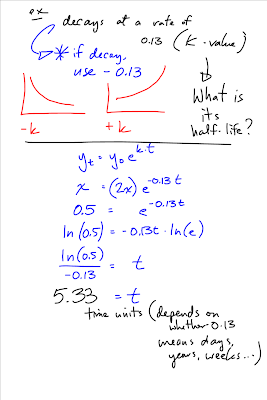 ex decays at a rate of
0.13 (k-value)
* if decay,
use -0.13
What is
its
half-life?
-k +k
y_t = y_0 e^{k·t}
x = (2x) e^{-0.13t}
0.5 = e^{-0.13t}
ln(0.5) = -0.13t · ln(e)
ln(0.5) / -0.13 = t
5.33 = t
time units (depends on
whether 0.13
means days,
years, weeks...)